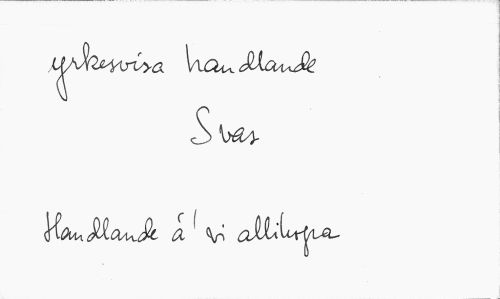 yrkesvisa handlande
Svas
Handlande á' vi allihopa